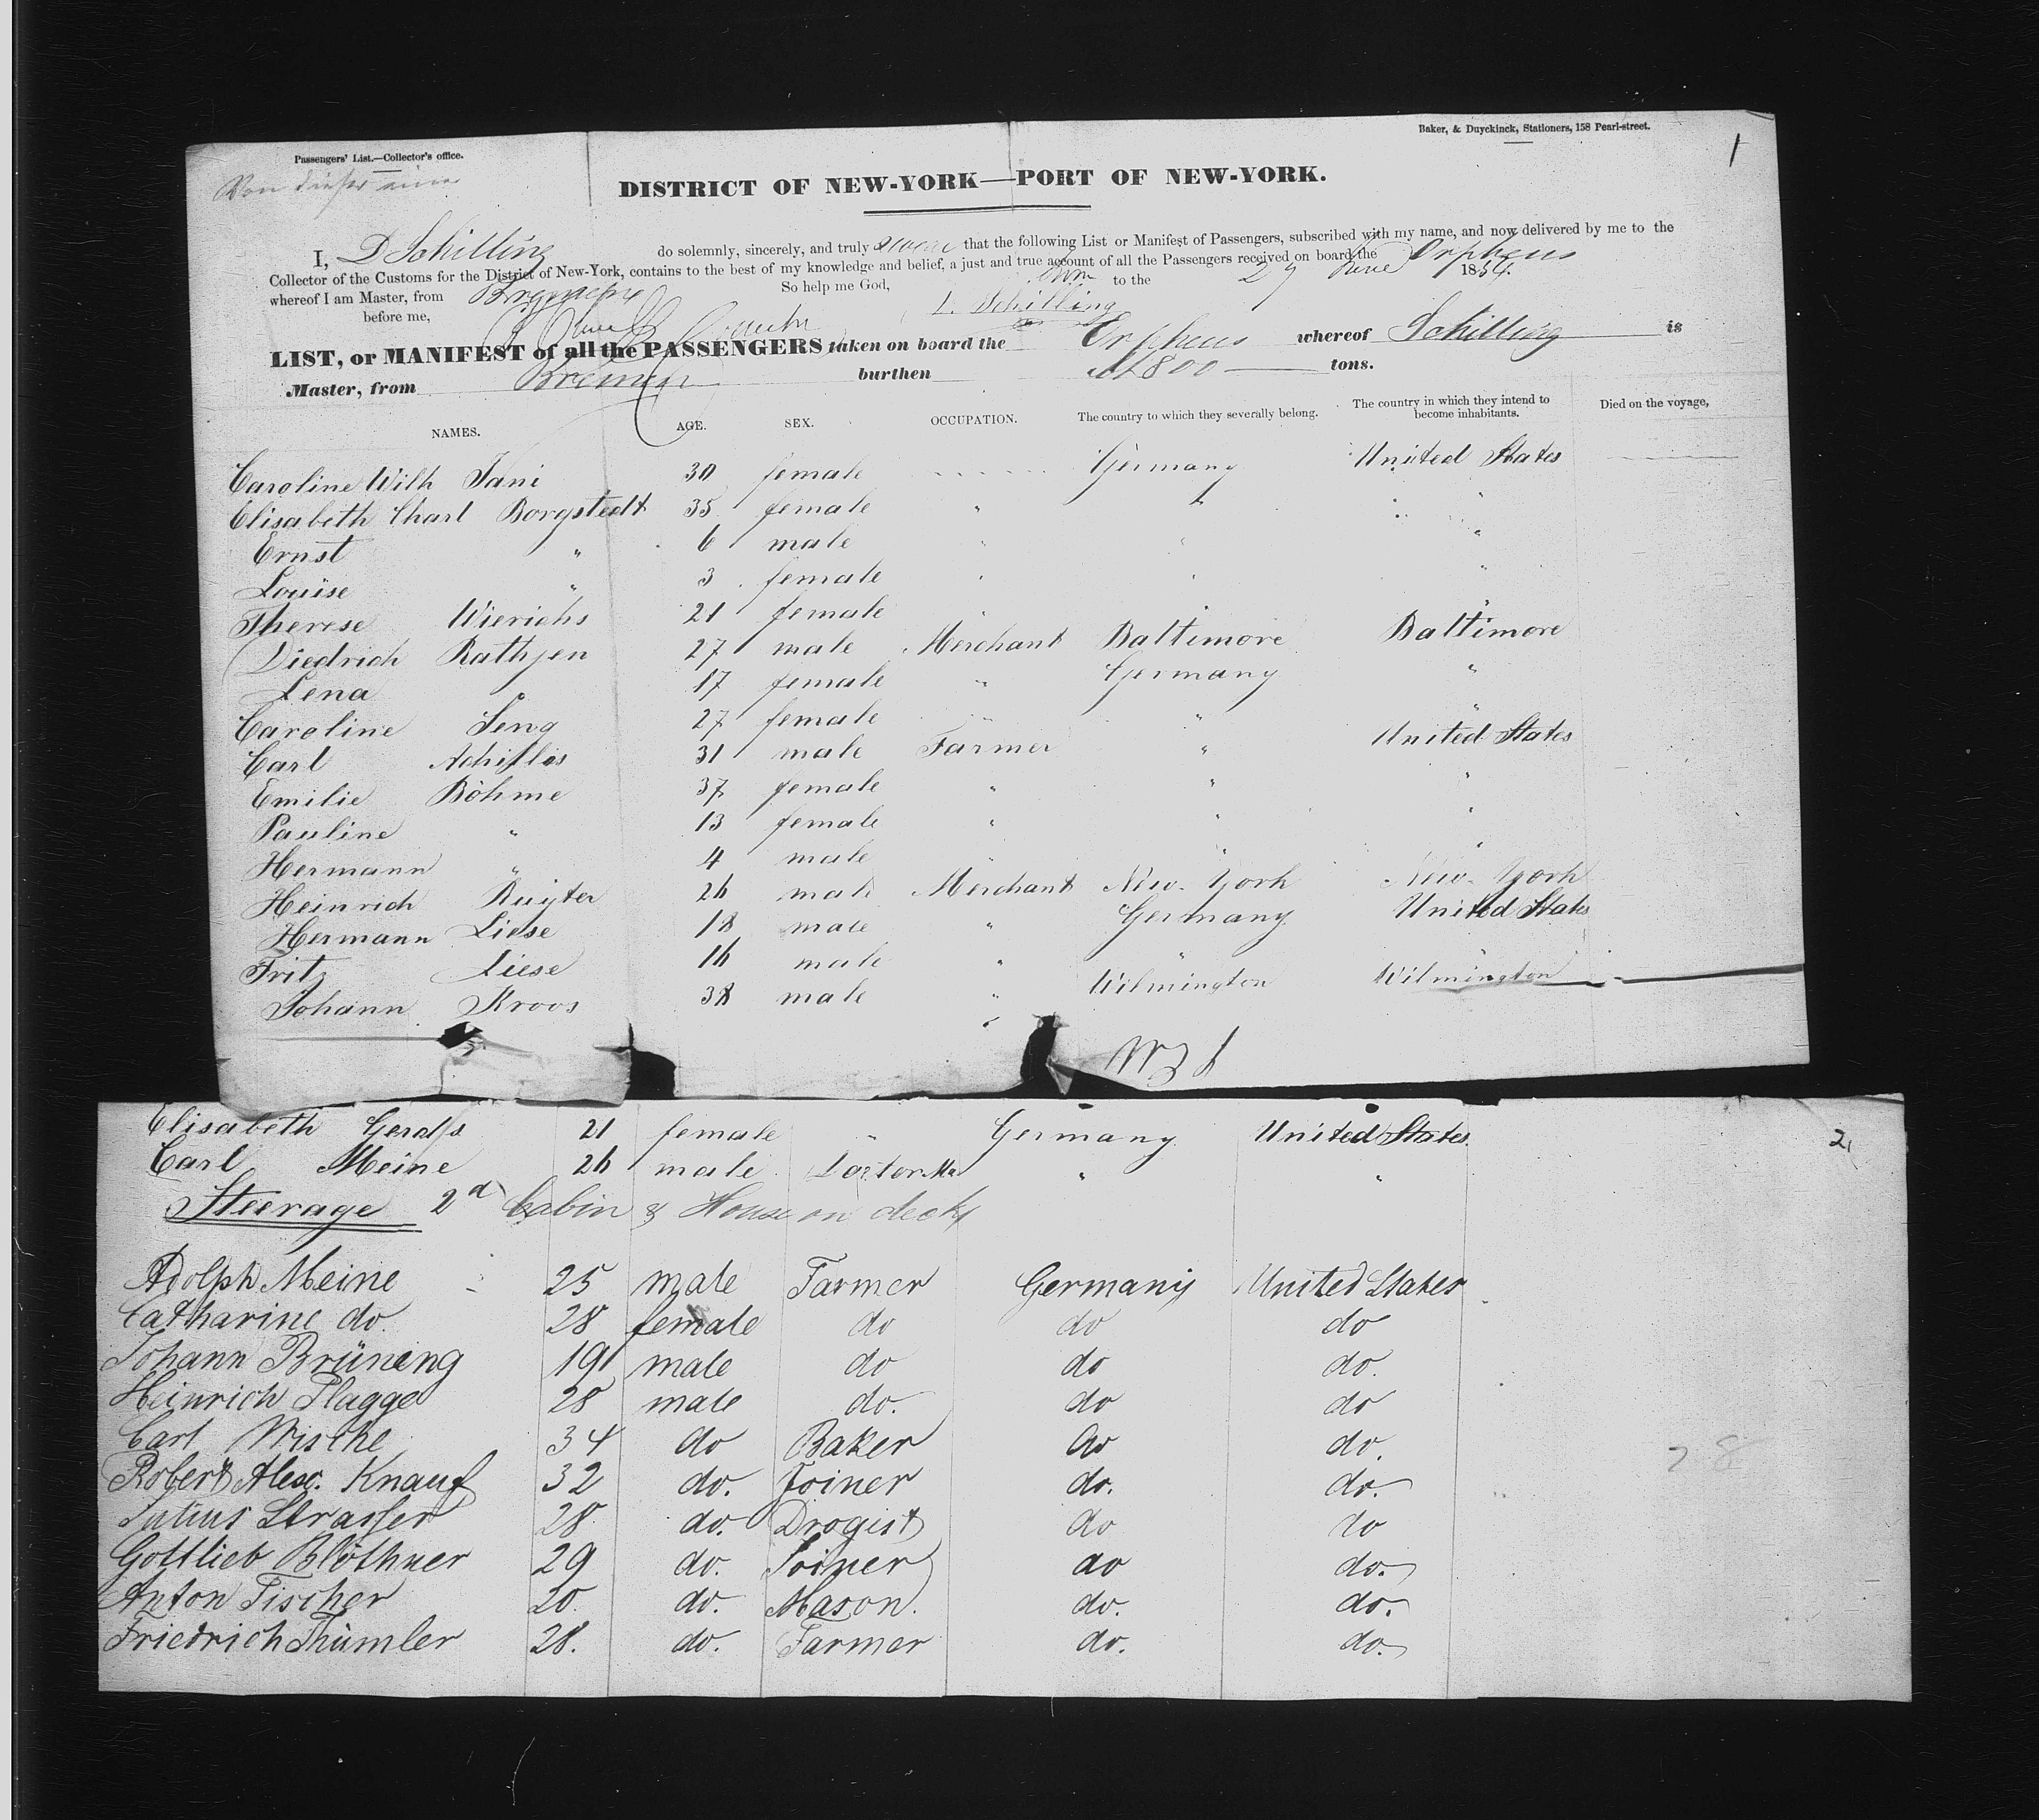 Passengers' List.—Collector's office.
Baker, & Duyckinck, Stationers, 158 Pearl-street.
1
Von dieser einer
DISTRICT OF NEW-YORK—PORT OF NEW-YORK.
I, D Schilling do solemnly, sincerely, and truly swear that the following List or Manifest of Passengers, subscribed with my name, and now delivered by me to the
Collector of the Customs for the District of New-York, contains to the best of my knowledge and belief, a just and true account of all the Passengers received on board the Orpheus
whereof I am Master, from Bremen So help me God, to the 27 June 1854.
before me, D. Schilling
LIST, or MANIFEST of all the PASSENGERS taken on board the Orpheus whereof Schilling is
Master, from Bremen burthen 800 tons.
NAMES. AGE. SEX. OCCUPATION. The country to which they severally belong. The country in which they intend to become inhabitants. Died on the voyage,
Caroline Wilh Jani 30 female Germany United States
Elisabeth Charl Borgstedt 35 female " " "
Ernst " 6 male " " "
Louise " 3 female " " "
Therese Wierichs 21 female " " "
Diedrich Rathjen 27 male Merchant Baltimore Baltimore
Lena " 17 female " Germany "
Caroline Seng 27 female " " "
Carl Achilles 31 male Farmer " United States
Emilie Böhme 37 female " " "
Pauline " 13 female " " "
Hermann " 4 male " " "
Heinrich Ruyter 26 male Merchant New-York New-York
Hermann Liese 18 male " Germany United States
Fritz Liese 16 male " " "
Johann Kroos 38 male " Wilmington Wilmington
Elisabeth Gerdts 21 female " Germany United States
2,
Carl Meine 26 male Doctor Md " "
Steerage 2d Cabin & House on deck
Adolph Meine 25 male Farmer Germany United States
Catharine do. 28 female do do do
Johann Brüneng 19 male do do do.
Heinrich Plagge 28 male do. do do
Carl Wischke 34 do Baker do do.
Robert Alex. Knauf 32 do. Joiner do. do.
28
Julius Strasser 28 do. Drogist do do
Gottlieb Blöthner 29 do. Joiner do do.
Anton Fischer 20. do. Mason. do. do.
Friedrich Thümler 28. do. Farmer do. do.